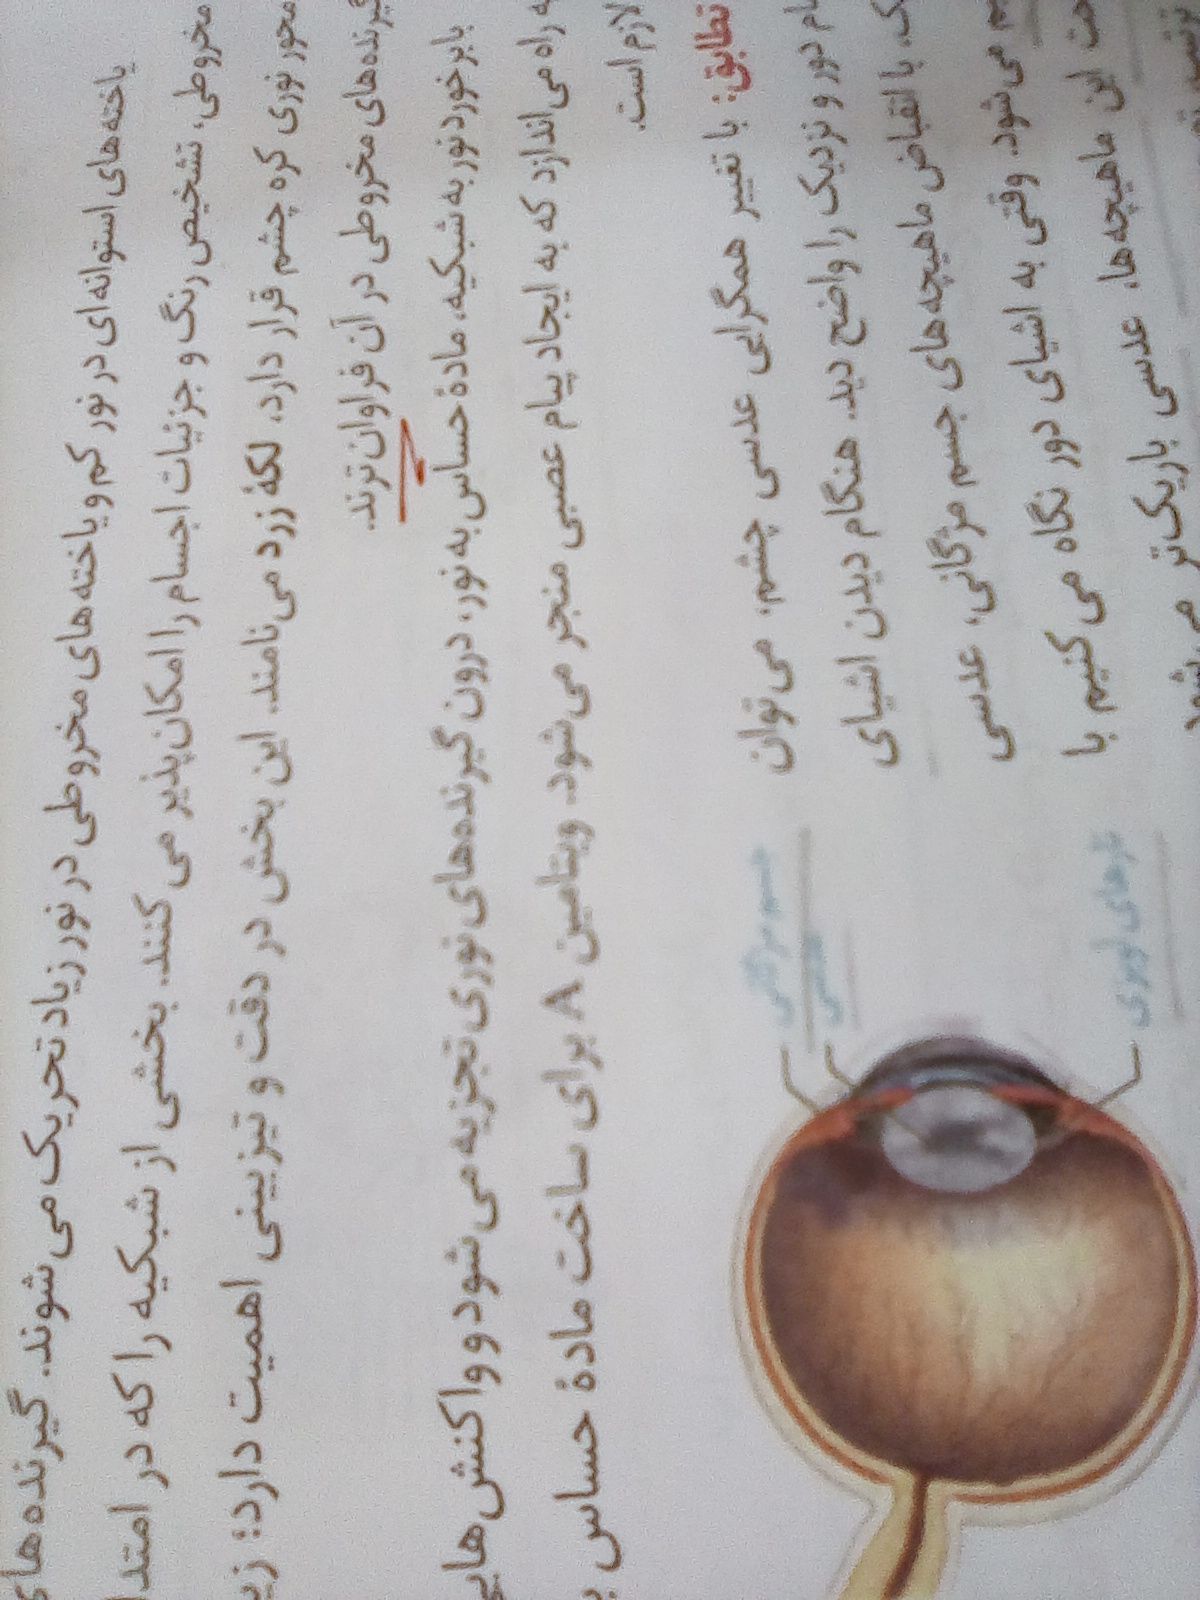 یاخته‌های استوانه‌ای در نور کم و یاخته‌های مخروطی در نور زیاد تحریک می‌شوند. گیرنده‌های
مخروطی، تشخیص رنگ و جزئیات اجسام را امکان‌پذیر می‌کنند. بخشی از شبکیه را که در امتدا
محور نوری کره چشم قرار دارد، لکهٔ زرد می‌نامند. این بخش در دقت و تیزبینی اهمیت دارد؛ زیر
گیرنده‌های مخروطی در آن فراوان‌ترند.
با برخورد نور به شبکیه، مادهٔ حساس به نور، درون گیرنده‌های نوری تجزیه می‌شود و واکنش‌هایی
به راه می‌اندازد که به ایجاد پیام عصبی منجر می‌شود. ویتامین A برای ساخت مادهٔ حساس ب
لازم است.
تطابق: با تغییر همگرایی عدسی چشم، می‌توان
دور و نزدیک را واضح دید. هنگام دیدن اشیای
با انقباض ماهیچه‌های جسم مژگانی، عدسی
می‌شود. وقتی به اشیای دور نگاه می کنیم با
این ماهیچه‌ها، عدسی باریک‌تر می‌شود
جسم مژگانی
عدسی
تارهای آویزی